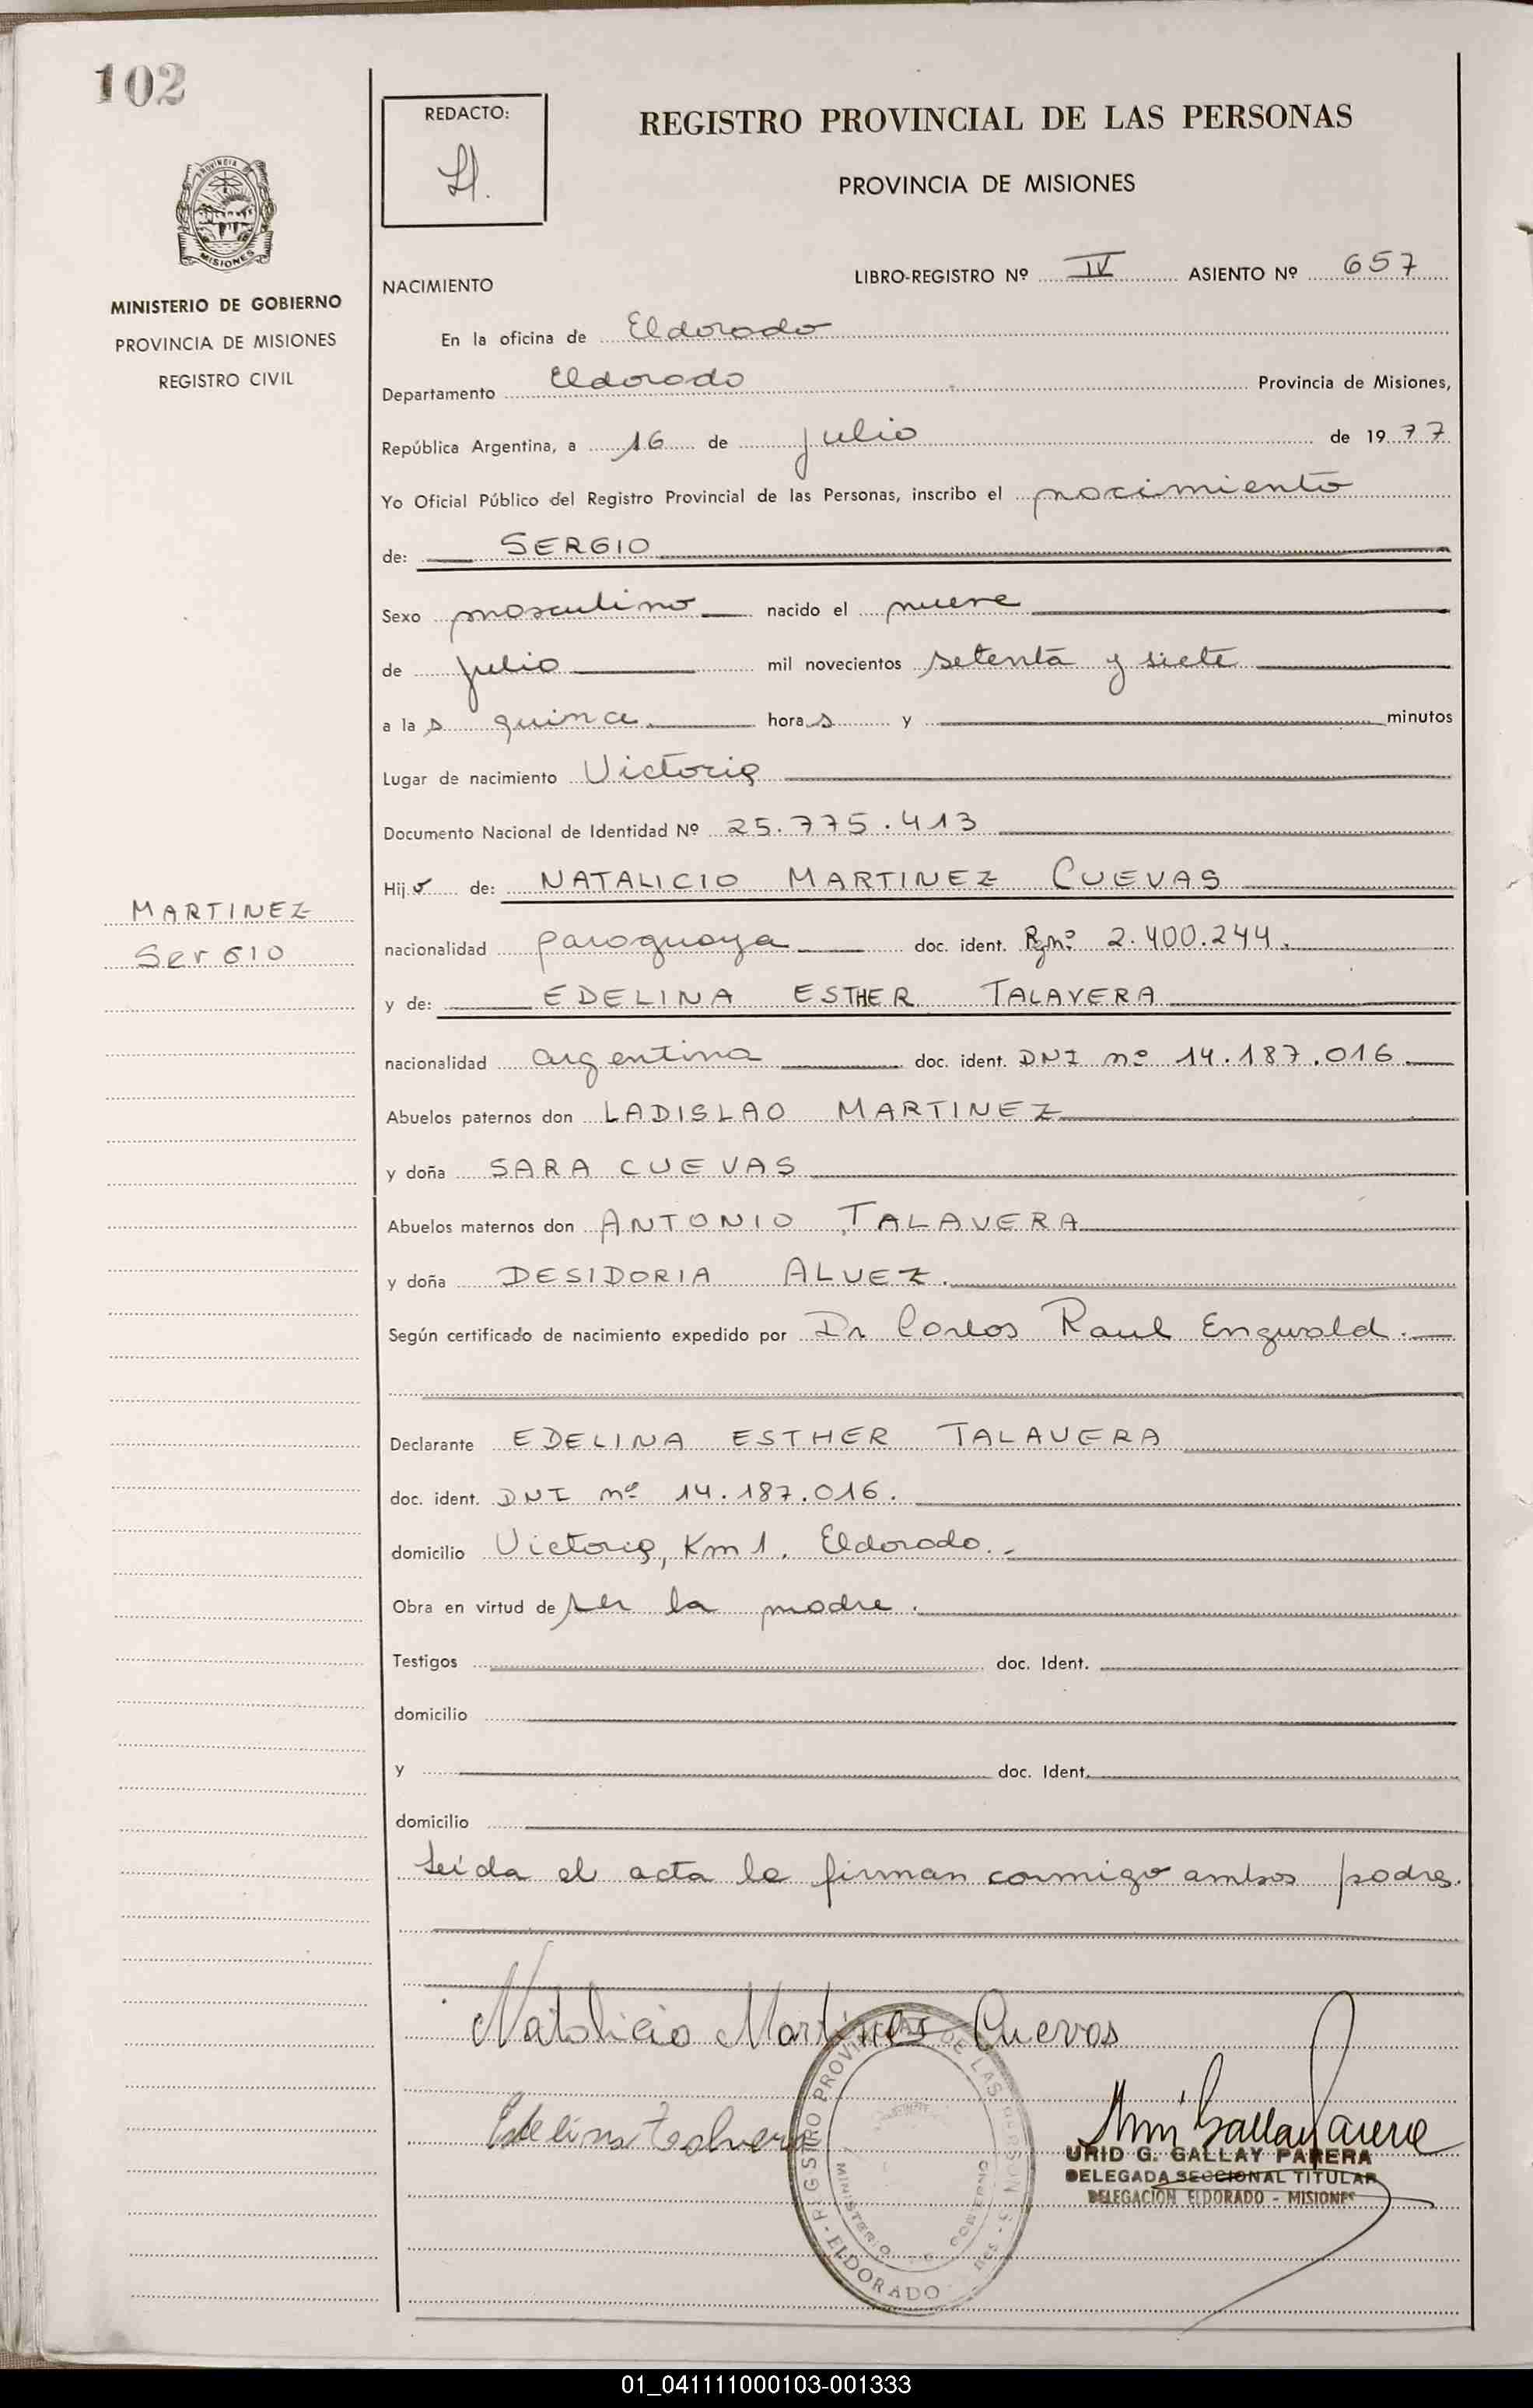 102
REDACTO:
REGISTRO PROVINCIAL DE LAS PERSONAS
PROVINCIA DE MISIONES
PROVINCIA
MISIONES
MINISTERIO DE GOBIERNO
PROVINCIA DE MISIONES
REGISTRO CIVIL
NACIMIENTO LIBRO-REGISTRO Nº IV ASIENTO Nº 657
En la oficina de Eldorado
Departamento Eldorado Provincia de Misiones,
República Argentina, a 16 de julio de 1977
Yo Oficial Público del Registro Provincial de las Personas, inscribo el nacimiento
de: SERGIO
Sexo masculino nacido el nueve
de julio mil novecientos setenta y siete
a las quince horas y minutos
Lugar de nacimiento Victoria
Documento Nacional de Identidad Nº 25.775.413
Hijo de: NATALICIO MARTINEZ CUEVAS
MARTINEZ
Sergio
nacionalidad paraguaya doc. ident. Rg nº 2.400.244.
y de: EDELINA ESTHER TALAVERA
nacionalidad argentina doc. ident. DNI nº 14.187.016
Abuelos paternos don LADISLAO MARTINEZ
y doña SARA CUEVAS
Abuelos maternos don ANTONIO TALAVERA
y doña DESIDORIA ALVEZ.
Según certificado de nacimiento expedido por Dr Carlos Raul Engwald.
Declarante EDELINA ESTHER TALAVERA
doc. ident. DNI nº 14.187.016.
domicilio Victoria, Km 1. Eldorado.-
Obra en virtud de ser la madre.
Testigos doc. Ident.
domicilio
y doc. Ident.
domicilio
Leída el acta la firman conmigo ambos padres.
Natalicio Martines Cuevas
Edelina Talavera
REGISTRO PROVINCIAL DE LAS PERSONAS
MINISTERIO DE GOBIERNO
ELDORADO
URID G. GALLAY PARERA
DELEGADA SECCIONAL TITULAR
DELEGACION ELDORADO - MISIONES
01_041111000103-001333